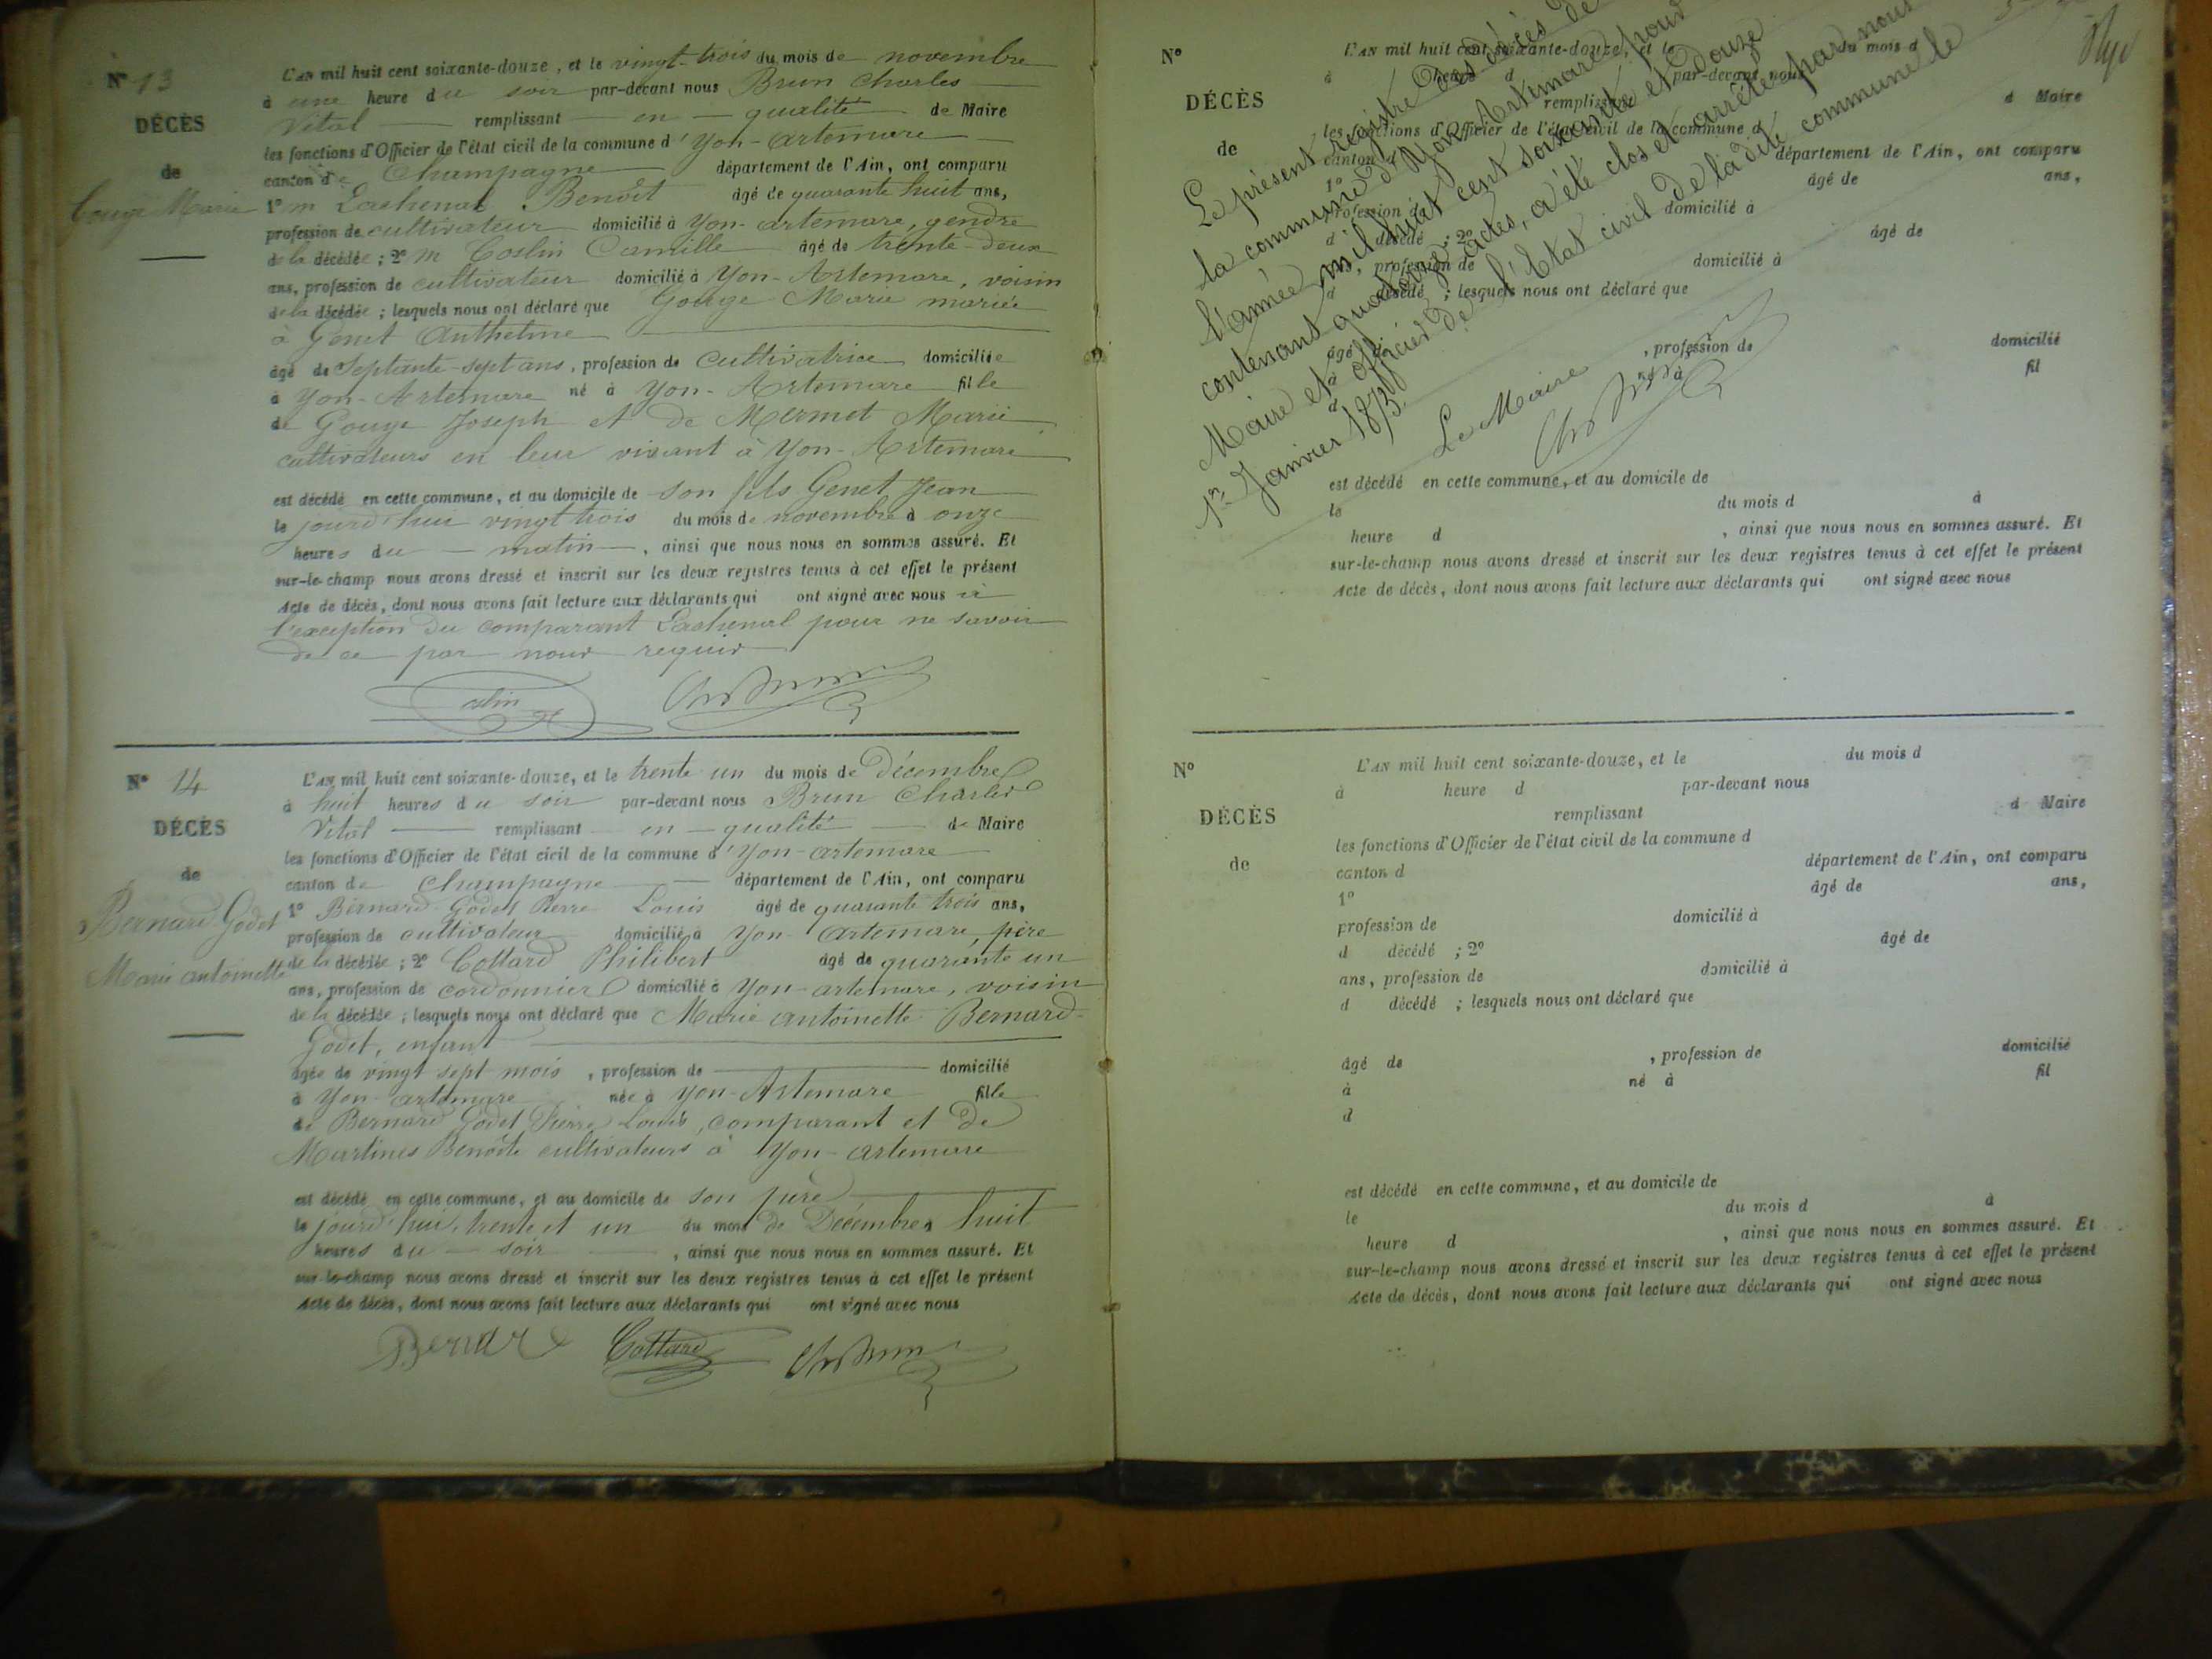 N° 13
DÉCÈS
de
Gouge Marie
L'AN mil huit cent soixante-douze, et le vingt-trois du mois de novembre
à une heure du soir par-devant nous Brun Charles
Vital remplissant en qualité de Maire
les fonctions d'Officier de l'état civil de la commune d'Yon-artemare
canton de Champagne département de l'Ain, ont comparu
1° m Lachenal Benoît âgé de quarante huit ans,
profession de cultivateur domicilié à Yon-artemare, gendre
de la décédée ; 2° m Coslin Camille âgé de trente-deux
ans, profession de cultivateur domicilié à Yon-Artemare, voisin
de la décédée ; lesquels nous ont déclaré que Gouge Marie mariée
à Genet Anthelme
âgé de Septante-sept ans, profession de cultivatrice domiciliée
à Yon-Artemare né à Yon-Artemare fille
de Gouge Joseph et de Mermet Marie
cultivateurs en leur vivant à Yon-Artemare
est décédé en cette commune, et au domicile de son fils Genet Jean
le jourd'hui vingt trois du mois de novembre à onze
heures du matin, ainsi que nous nous en sommes assuré. Et
sur-le-champ nous avons dressé et inscrit sur les deux registres tenus à cet effet le présent
Acte de décès, dont nous avons fait lecture aux déclarants qui ont signé avec nous à
l'exception du comparant Lachenal pour ne savoir
de ce par nous requis
oslin
Ch Brun
N° 14
DÉCÈS
de
Bernard Godet
Marie antoinette
L'AN mil huit cent soixante-douze, et le trente un du mois de Décembre
à huit heures du soir par-devant nous Brun Charles
Vital remplissant en qualité de Maire
les fonctions d'Officier de l'état civil de la commune d'Yon-artemare
canton de Champagne département de l'Ain, ont comparu
1° Bernard Godet Pierre Louis âgé de quarante trois ans,
profession de cultivateur domicilié à Yon-Artemare, père
de la décédée ; 2° Cottard Philibert âgé de quarante un
ans, profession de cordonnier domicilié à Yon-artemare, voisin
de la décédée ; lesquels nous ont déclaré que Marie antoinette Bernard-
Godet, enfant
âgée de vingt sept mois, profession de domicilié
à Yon-artemare née à Yon-Artemare fille
de Bernard Godet Pierre Louis, comparant et de
Martines Benoîte cultivateurs à Yon-artemare
est décédé en cette commune, et au domicile de son père
le jourd'hui, trente et un du mois de Décembre à huit
heures du soir, ainsi que nous nous en sommes assuré. Et
sur-le-champ nous avons dressé et inscrit sur les deux registres tenus à cet effet le présent
Acte de décès, dont nous avons fait lecture aux déclarants qui ont signé avec nous
Bernard Cottard Ch Brun
N°
DÉCÈS
de
L'AN mil huit cent soixante-douze, et le du mois d
à heure d par-devant nous
remplissant d Maire
les fonctions d'Officier de l'état civil de la commune d
canton d département de l'Ain, ont comparu
1° âgé de ans,
profession de domicilié à
d décédé ; 2° âgé de
ans, profession de domicilié à
d décédé ; lesquels nous ont déclaré que
âgé de , profession de domicilié
à né à fil
d
Le présent registre des décès de
la commune d'Yon-Artemare, pour
l'année mil huit cent soixante et douze
contenant quatorze actes, a été clos et arrêté par nous
Maire et Officier de l'Etat civil de la dite commune le
1er Janvier 1873.
Le Maire
Ch Brun
est décédé en cette commune, et au domicile de
le du mois d à
heure d , ainsi que nous nous en sommes assuré. Et
sur-le-champ nous avons dressé et inscrit sur les deux registres tenus à cet effet le présent
Acte de décès, dont nous avons fait lecture aux déclarants qui ont signé avec nous
N°
DÉCÈS
de
L'AN mil huit cent soixante-douze, et le du mois d
à heure d par-devant nous
remplissant d Maire
les fonctions d'Officier de l'état civil de la commune d
canton d département de l'Ain, ont comparu
1° âgé de ans,
profession de domicilié à
d décédé ; 2° âgé de
ans, profession de domicilié à
d décédé ; lesquels nous ont déclaré que
âgé de , profession de domicilié
à né à fil
d
est décédé en cette commune, et au domicile de
le du mois d à
heure d , ainsi que nous nous en sommes assuré. Et
sur-le-champ nous avons dressé et inscrit sur les deux registres tenus à cet effet le présent
Acte de décès, dont nous avons fait lecture aux déclarants qui ont signé avec nous